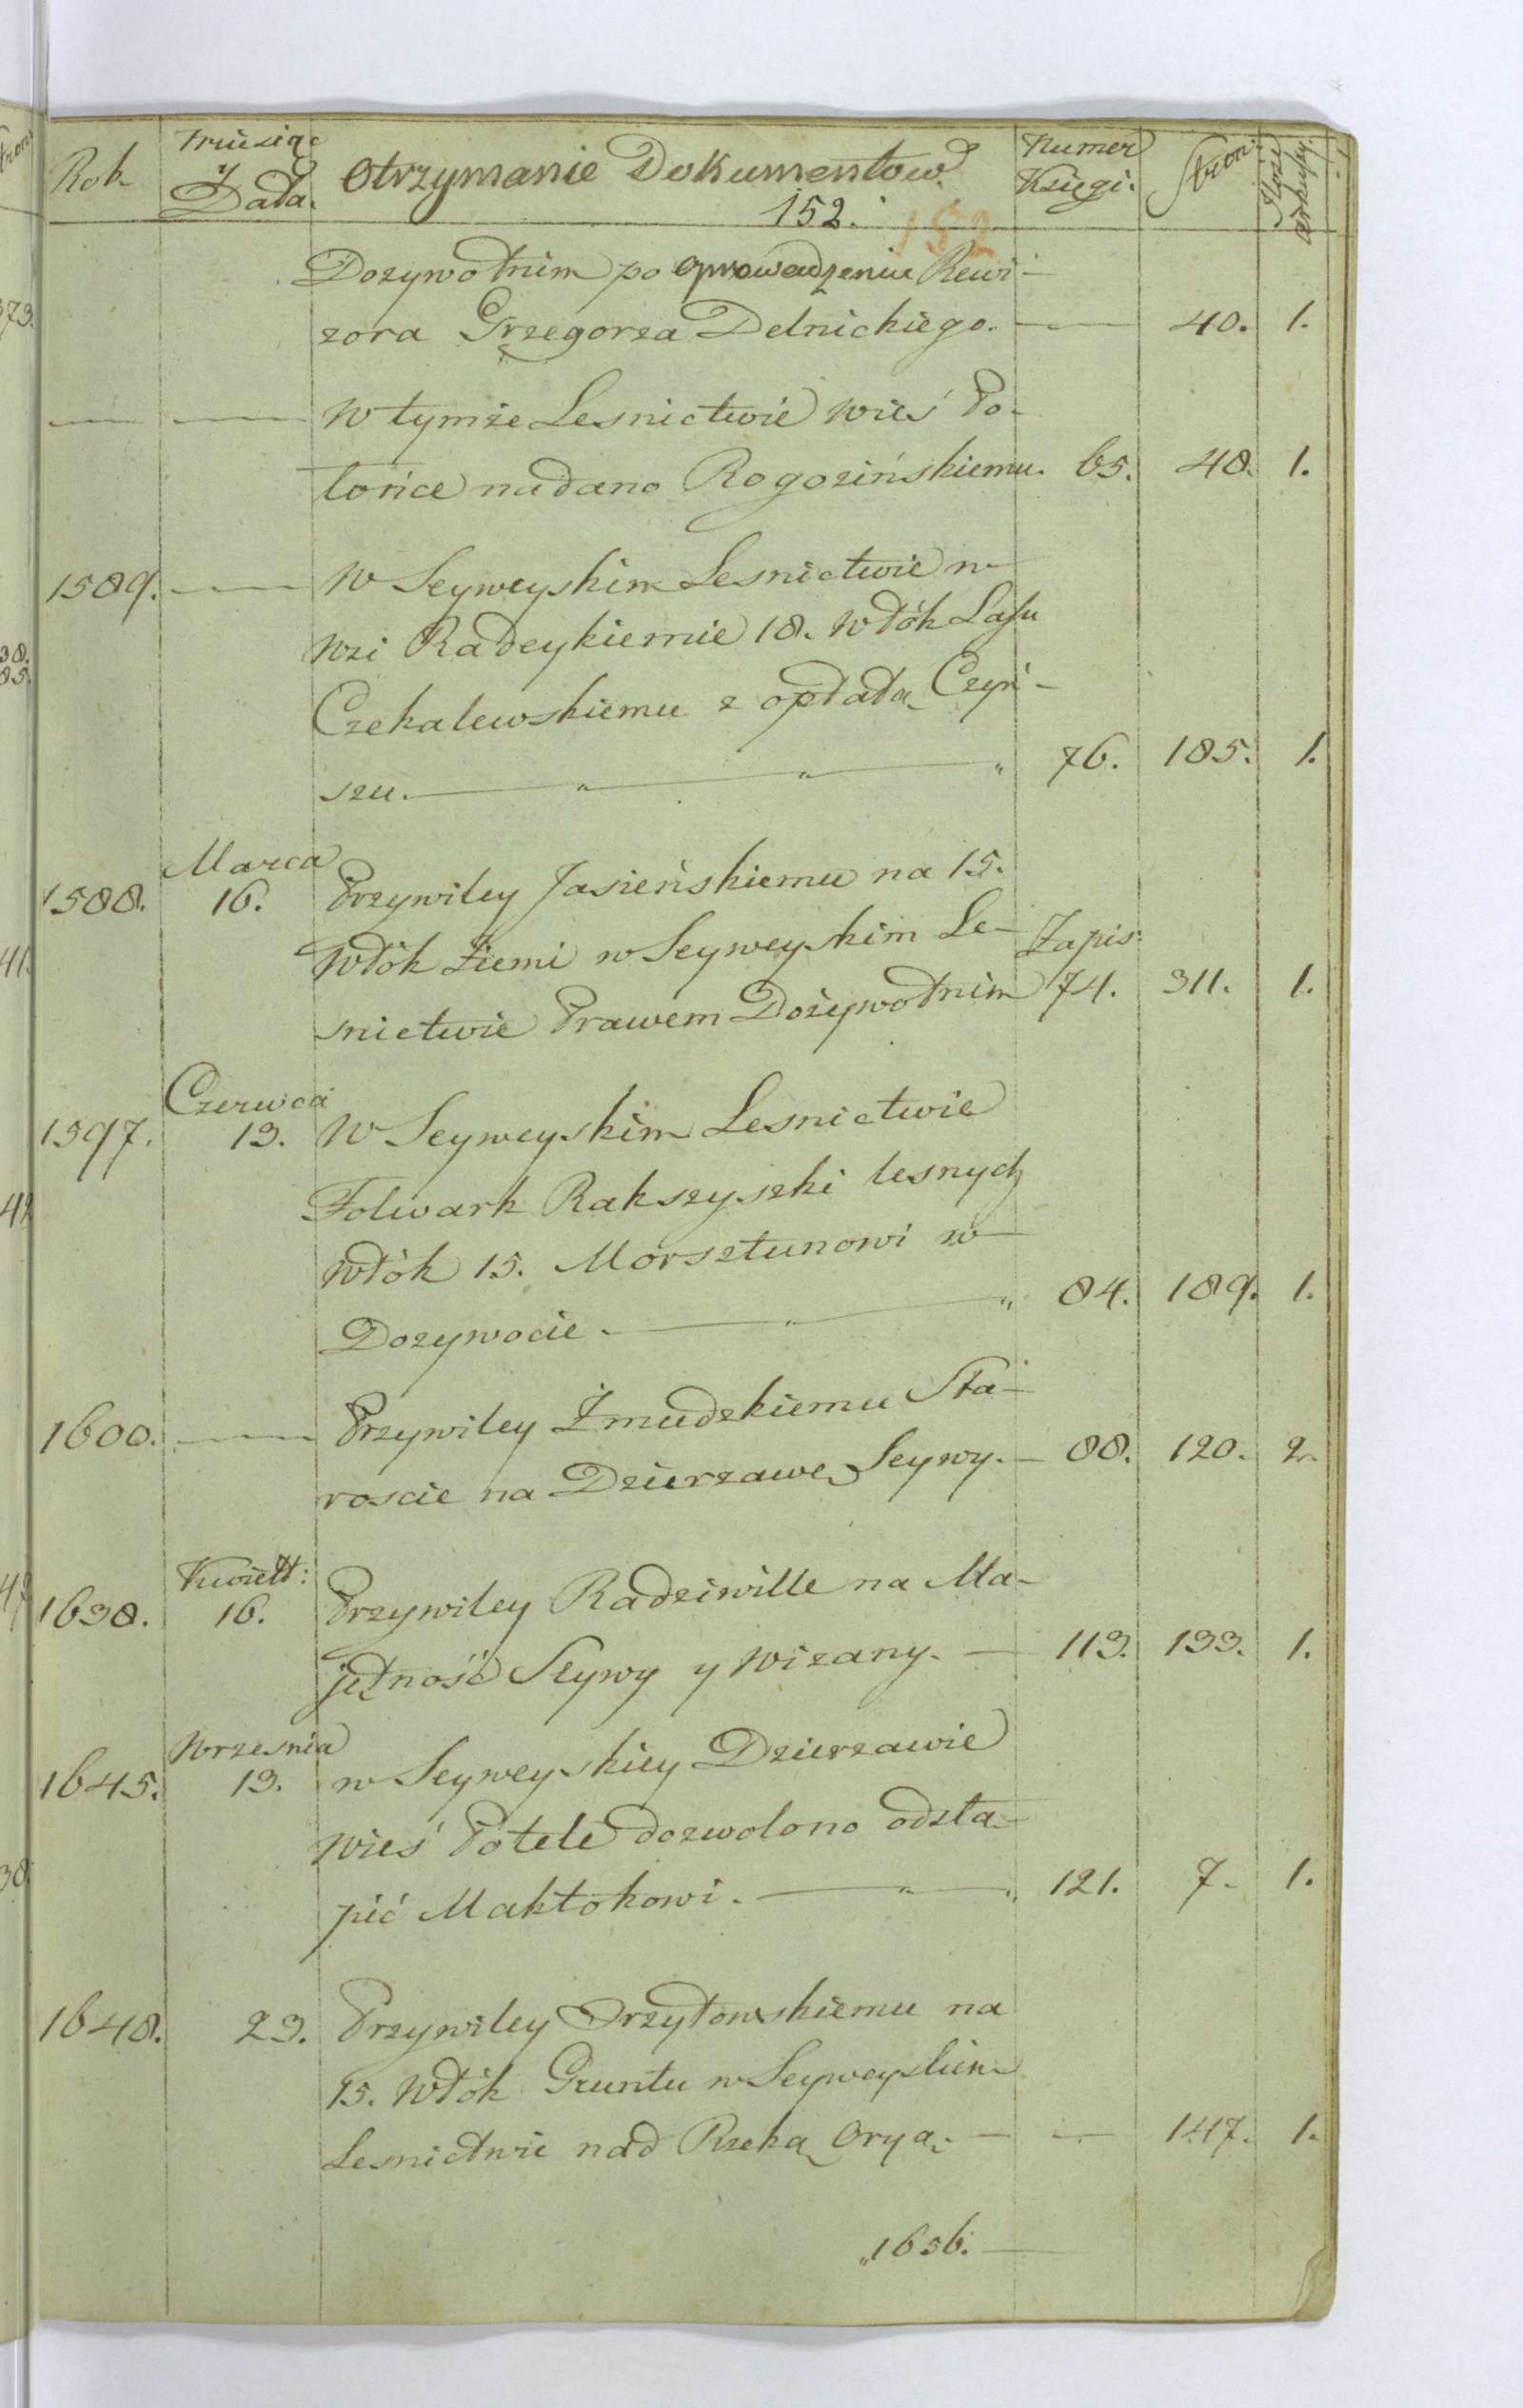 Rok Miesiąc y Data. Otrzymanie Dokumentow. Numer Księgi. Stron:
152. 152
Dozywotnim po oprowadzeniu Rewi-
zora Grzegorza Delnickiego. — 40. 1.
— — W tymże Lesnictwie wieś Po-
tońce nadano Rogozińskiemu. 65. 48. 1.
1589. — W Seyweyskim Lesnictwie w
wsi Radeykiemie 18. Włók Lasu
Czekalewskiemu z opłatą Czyn-
szu. — " — " — " 76. 185. 1.
Marca
1588. 16. Przywiley Jasieńskiemu na 15.
Włók Ziemi w Seyweyskim Le- Zapis:
snictwie Prawem Dożywotnim 74. 311. 1.
Czerwca
1597. 13. W Seyweyskim Lesnictwie
Folwark Rakszyszki lesnych
włók 15. Morsztunowi w
Dozywocie. — " — " 84. 189. 1.
1600. — Przywiley Żmudzkiemu Sta-
roscie na Dzierzawę Seywy. — 88. 120. 2.
Kwiett:
1638. 16. Przywiley Radziwille na Ma-
jętność Seywy y Wizany. — 113. 133. 1.
Wrzesnia
1645. 13. w Seyweyskiey Dzierzawie
wieś Potele dozwolono odstą-
pić Maktokowi. — " — " 121. 7. 1.
1648. 23. Przywiley Przytowskiemu na
15. Włók Gruntu w Seyweyskim
Lesnictwie nad Rzeką Oryą. — — 147. 1.
"1656. —